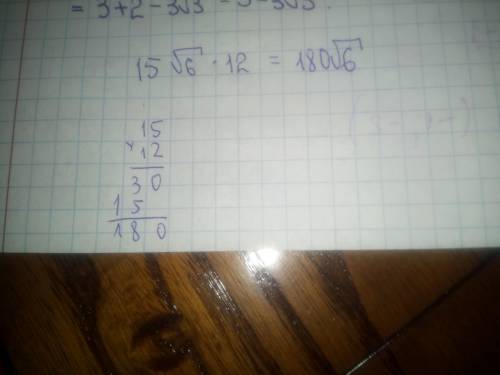 = 3+2-3√3 = 5-3√3.
15√6 · 12 = 180√6
15
× 12
30
15
180